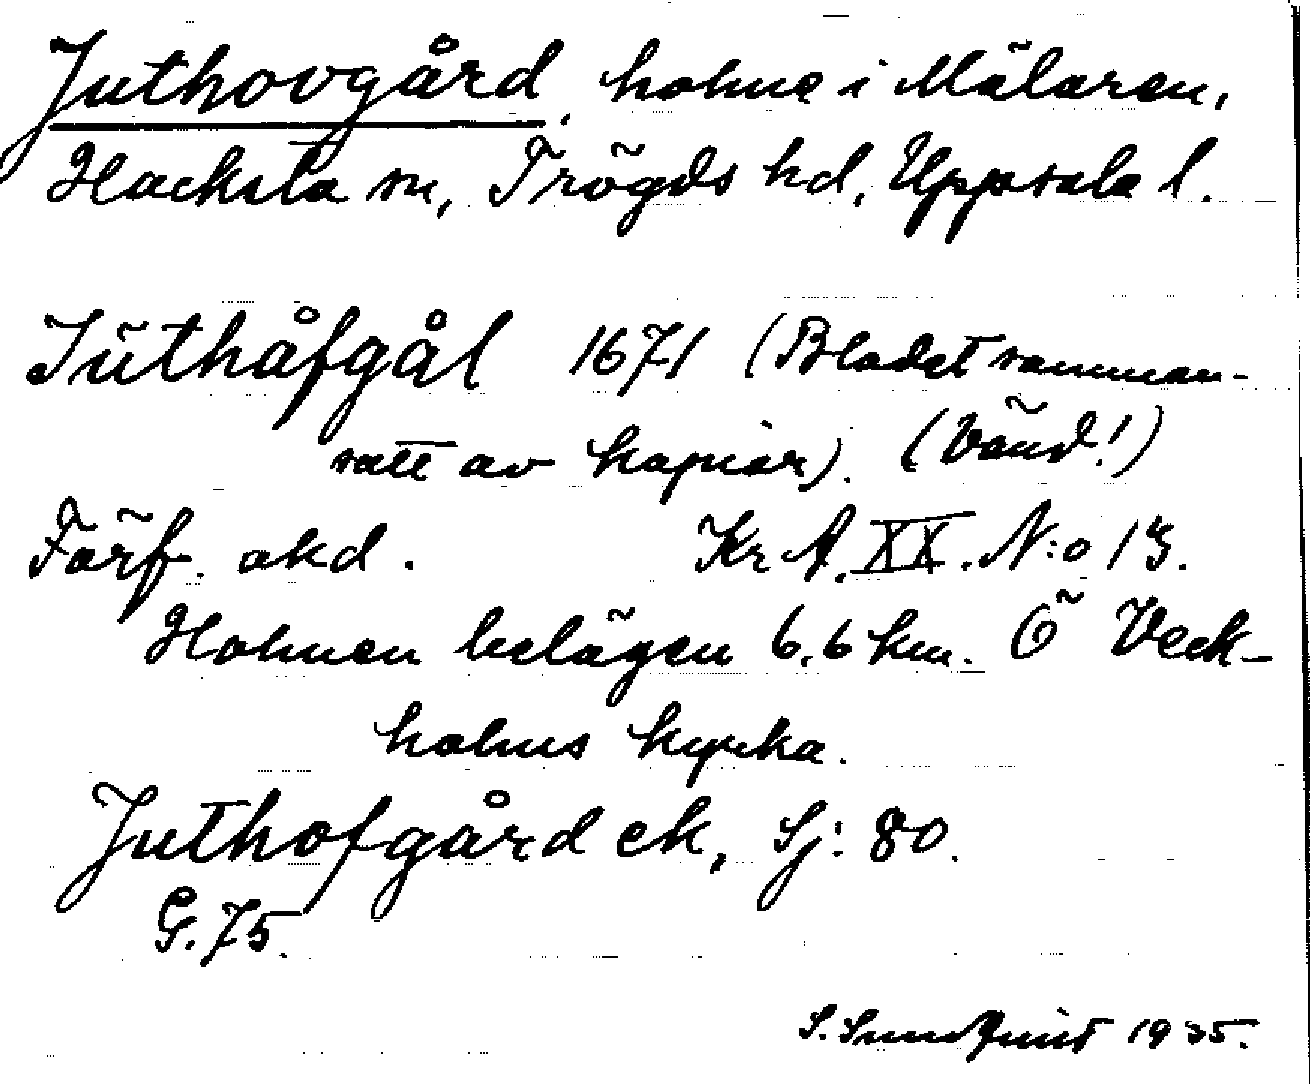 Juthovgård, holme i Mälaren,
Hacksta sn, Trögds hd, Uppsala l.
Juthåfgål 1671 (Bladet samman-
satt av kopior). (Vänd!)
Förf. okd. Kr A. XX. N:o 13.
Holmen belägen 6,6 km. Ö Veck-
holms kyrka.
Juthofgård ek, Sj: 80.
G. 75.
S. Sundquist 1935.